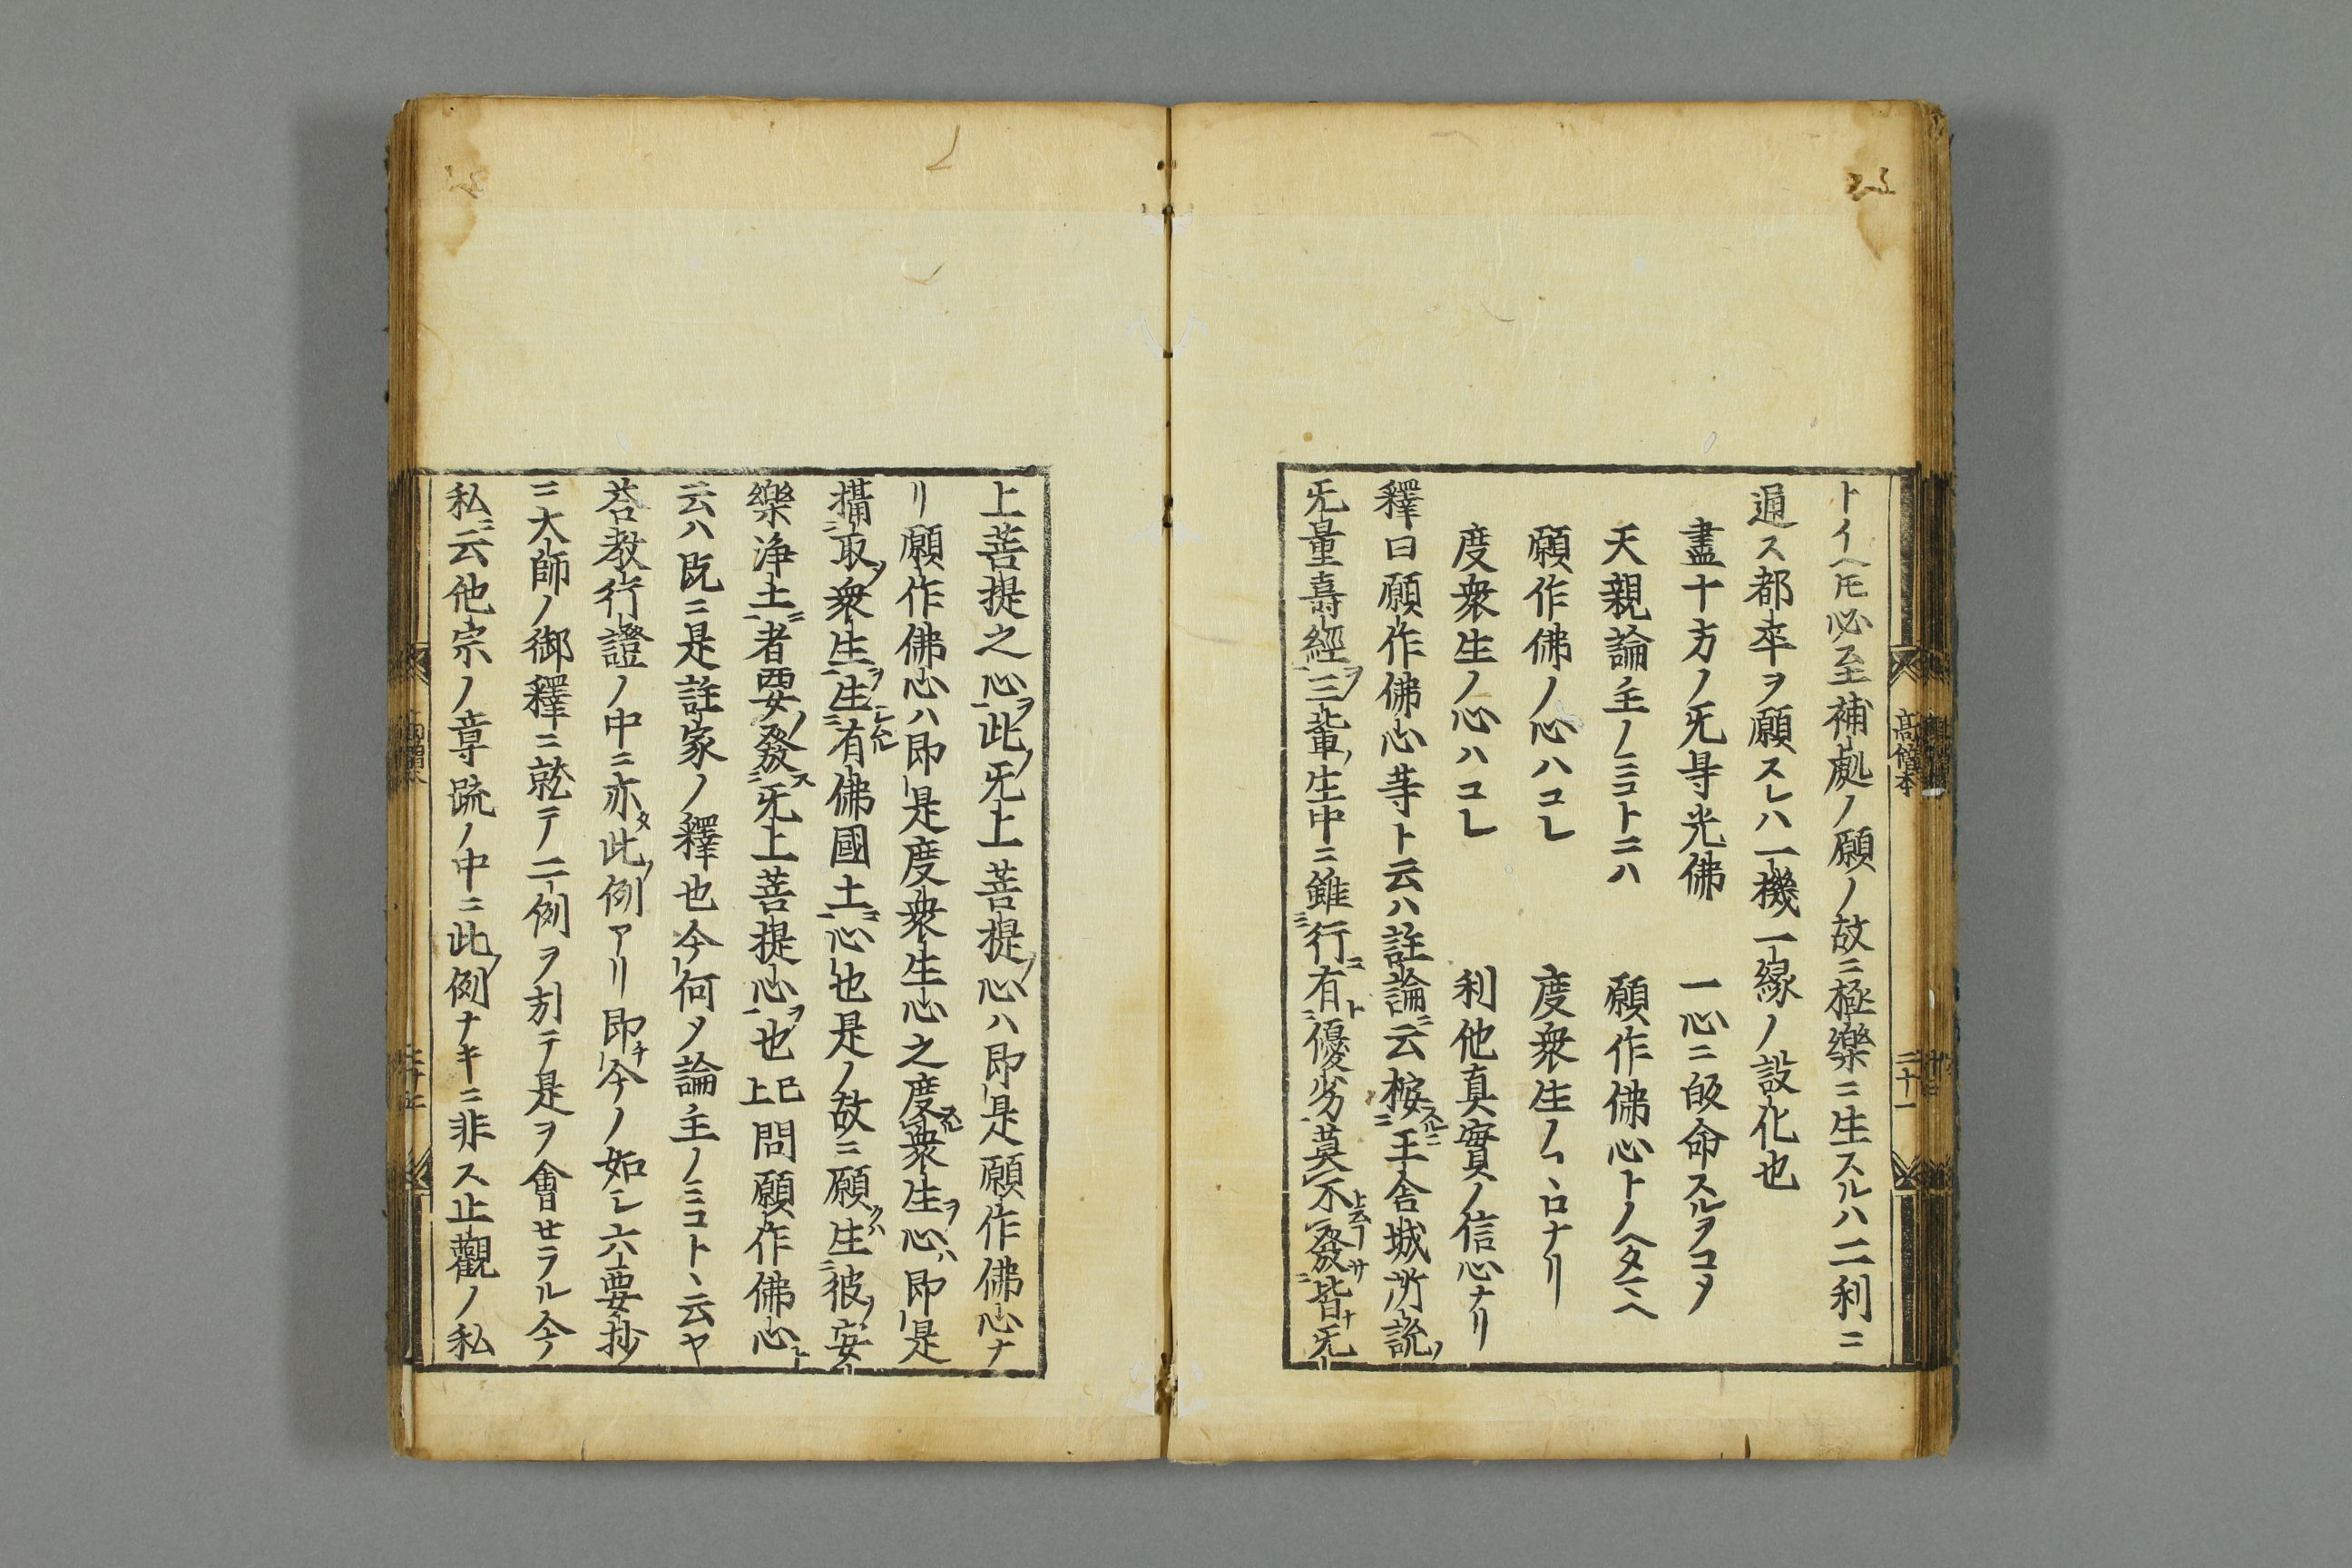 トイヘ𪜈必至補處ノ願ノ故ニ極樂ニ生スルハ二利ニ
通ス都卒ヲ願スレハ一機一縁ノ設化也
盡十方ノ旡㝵光佛　一心ニ皈命スルヲコソ
天親論主ノミコトニハ　願作佛心トノヘタマヘ
願作佛ノ心ハコレ　度衆生ノ心ナリ
度衆生ノ心ハコレ　利他真實ノ信心ナリ
釋曰願作佛心等ト云ハ註論ニ云桉スルニ王舎城所說ノ
旡量壽經ヲ三輩生中ニ雖行ニ有ト優劣莫不發皆旡
上菩提之心ヲ此ノ旡上菩提心ハ即是願作佛心ナ
リ願作佛心ハ即是度衆生心之度衆生ヲ心ハ即是
攝取衆生ヲ生有佛國土ニ心也是ノ故ニ願生彼ノ安
樂浄土ニ者要ノ發ス旡上菩提心ヲ也已上問願作佛心ト
云ハ既ニ是註家ノ釋也今何ソ論主ノミコトヽ云ヤ
荅教行證ノ中ニ亦タ此ノ例アリ即チ今ノ如シ六要抄
ニ大師ノ御釋ニ就テ二例ヲ引テ是ヲ會セラル今
私ニ云他宗ノ章疏ノ中ニ此ノ例ナキニ非ス止觀ノ私
髙僧本
二十一